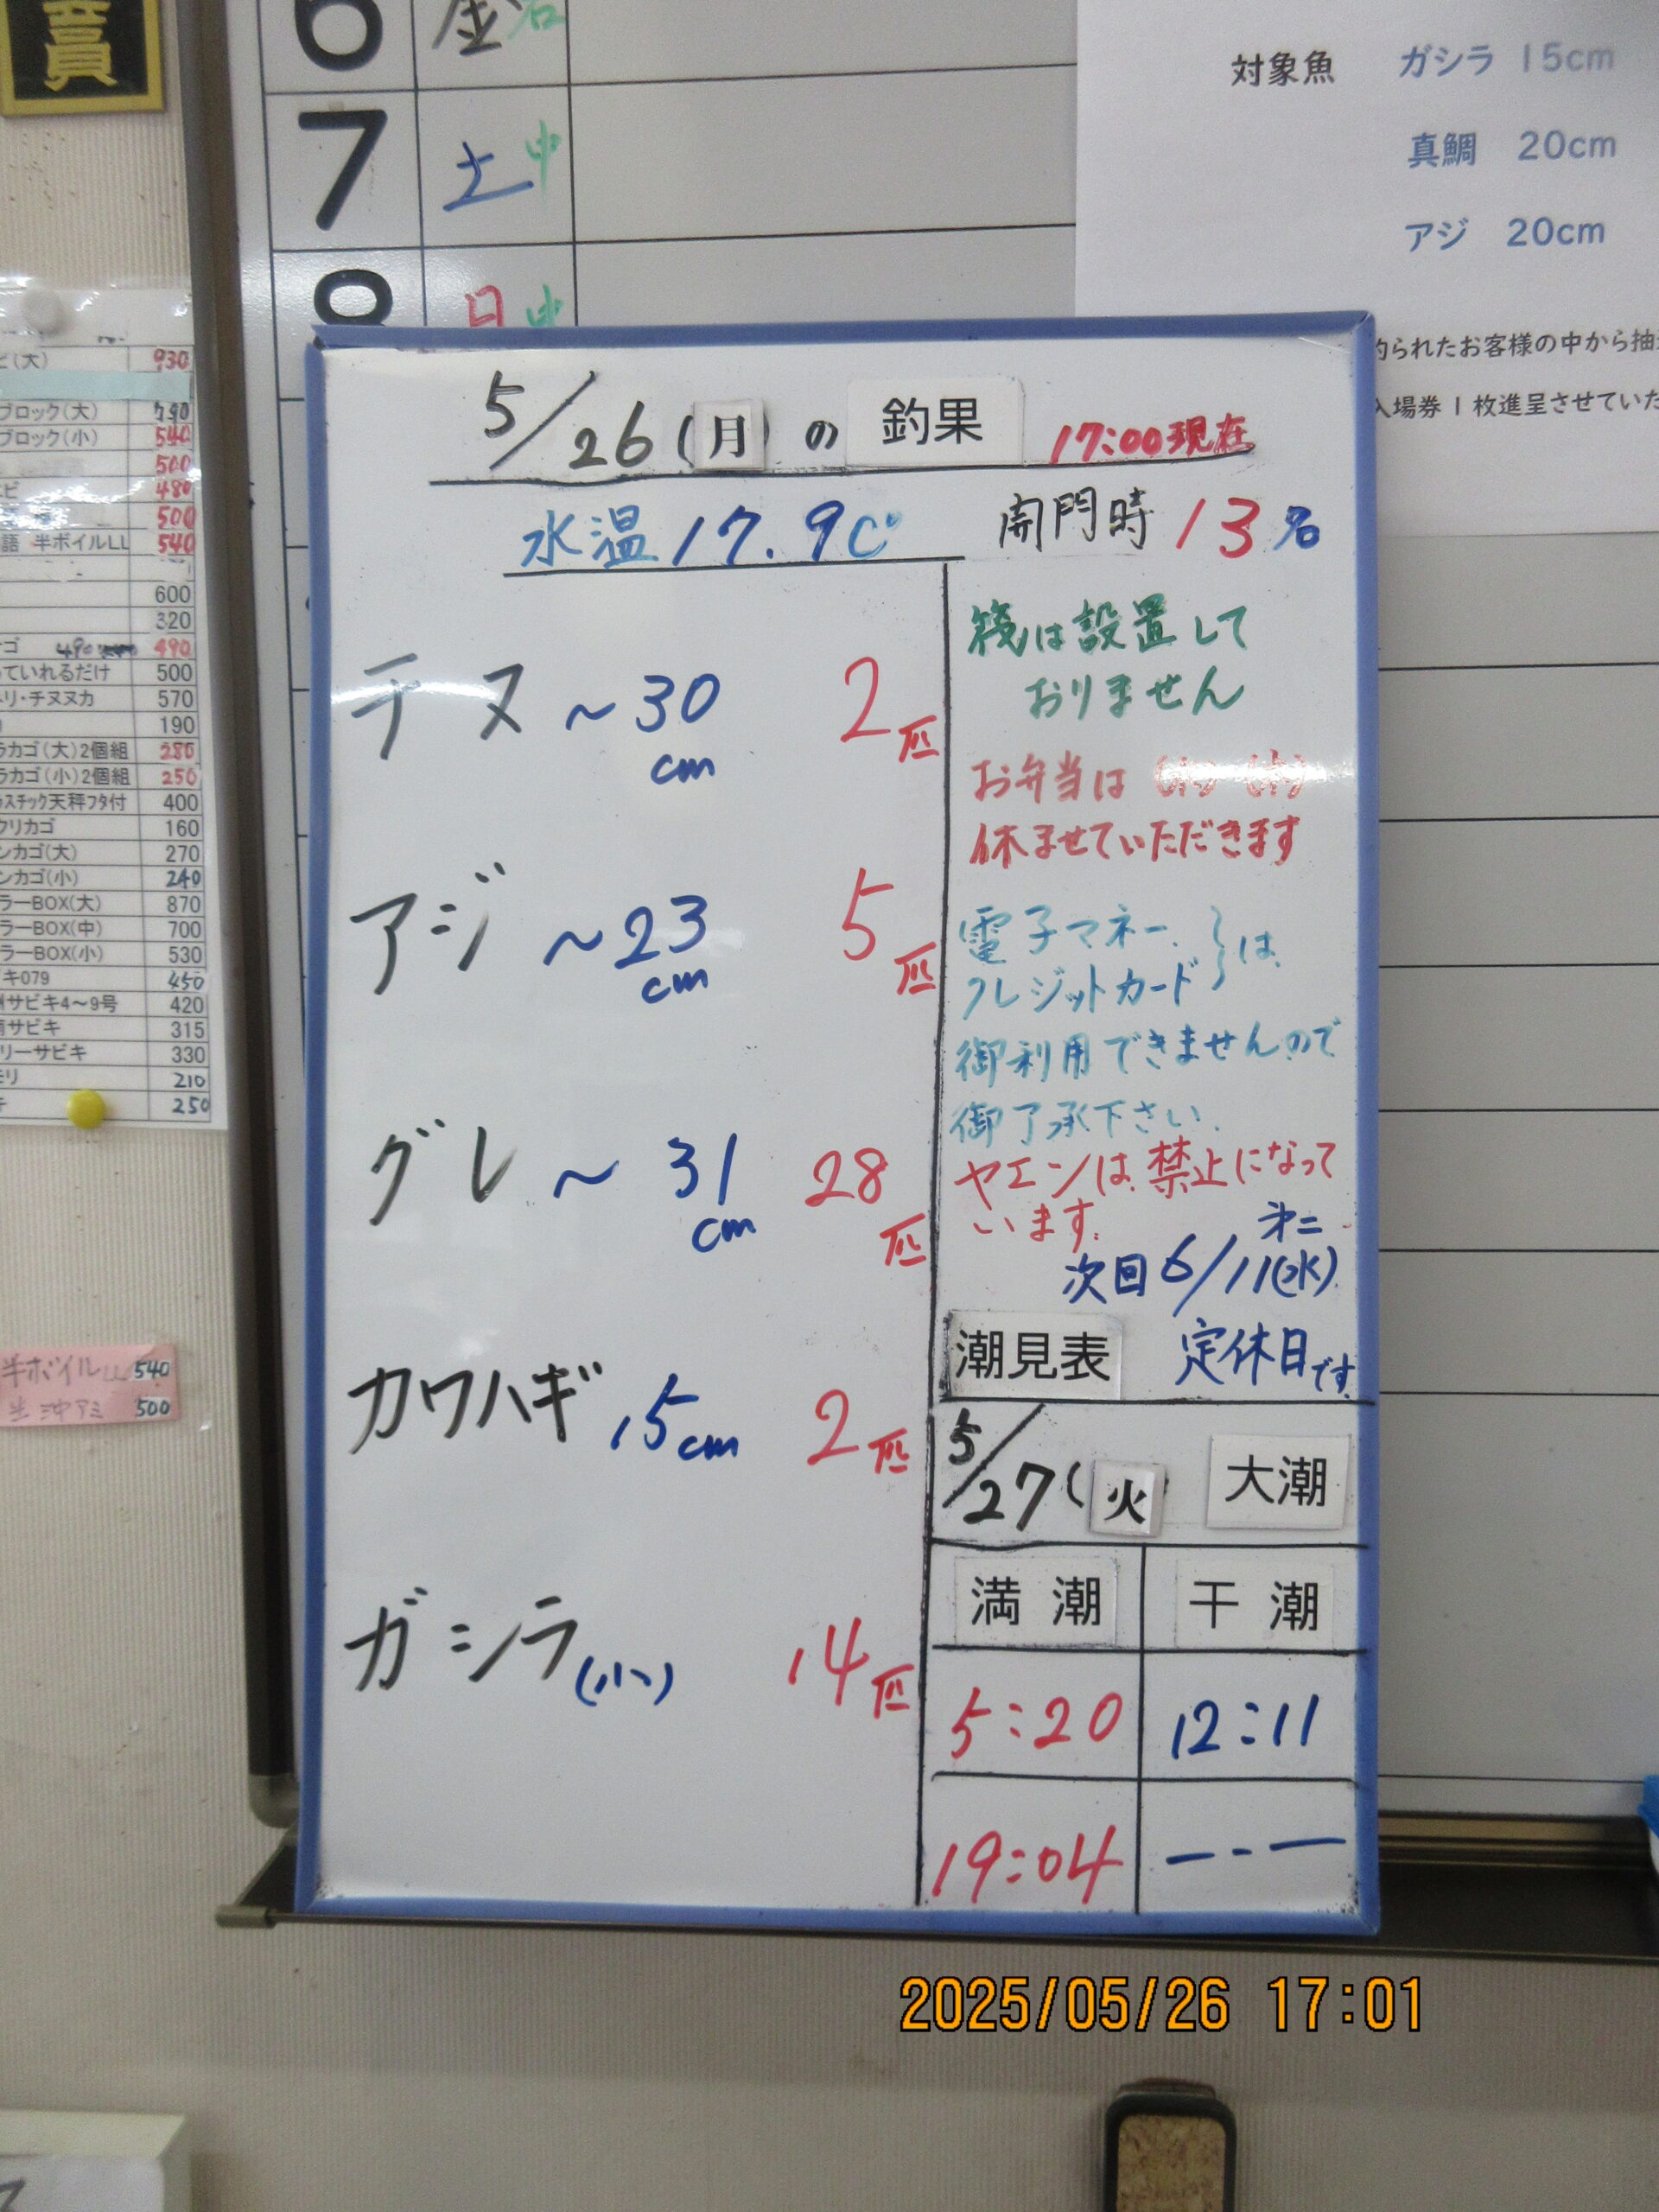 6 金
7 土 中
8 日 中
対象魚 ガシラ 15cm
真鯛 20cm
アジ 20cm
釣られたお客様の中から抽
入場券1枚進呈させていた
5/26(月)の 釣果 17:00現在
水温 17.9C° 開門時 13名
チヌ ~30cm 2匹
アジ ~23cm 5匹
グレ ~31cm 28匹
カワハギ 15cm 2匹
ガシラ(小) 14匹
筏は設置して
おりません
お弁当は
休ませていただきます
電子マネー、
クレジットカード}は
御利用できませんので
御了承下さい、
ヤエンは禁止になって
います。
次回 6/11(水)
定休日です
潮見表
5/27(火) 大潮
満潮 干潮
5:20 12:11
19:04 ---
(大) 930
ブロック(大) 790
ブロック(小) 540
500
480
500
半ボイルLL 540
600
320
490
ていれるだけ 500
リ・チヌヌカ 570
190
ラカゴ(大)2個組 280
ラカゴ(小)2個組 250
スチック天秤フタ付 400
クリカゴ 160
ンカゴ(大) 270
ンカゴ(小) 240
ラーBOX(大) 870
ラーBOX(中) 700
ラーBOX(小) 530
キ079 450
サビキ4~9号 420
サビキ 315
リーサビキ 330
210
250
半ボイルLL 540
生沖アミ 500
2025/05/26 17:01